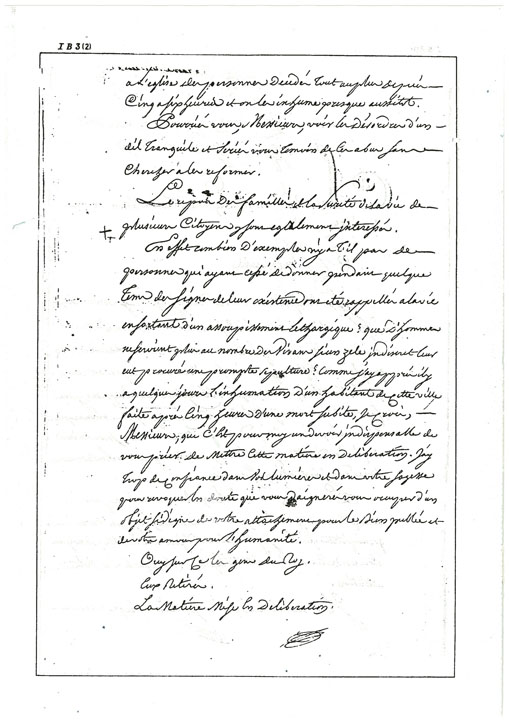 I B 3 (2)
a l'eglise des personnes Decedés Tout auplus depuis
Cinq a six heures et on les inhume presque aussitot.
Pourriés vous, Messieurs, voir les Desordres d'un
œil Tranquile et seriés vous Temoins de ces abus sans
Chercher a les reformer.
Le repos Des familles et la sureté de la vie de
plusieurs Citoyens y sont egalement interessés.
En effet combien D'exemples n'y a t'il pas de
personnes qui ayant cessé de donner pendant quelque
Tems des signes de leur existence ont été rappellés a la vie
en sortant d'un assoupissement lethargique? que d'hommes
seroient plus au nombre des Vivans si un zele indiscret leur
eut procuré une prompte sepulture? Comme j'ay appris il y
a quelques jours l'inhumation d'un habitant de cette ville
faite aprés Cinq heures D'une mort subite, Je crois,
Messieurs, que C'est pour moy un devoir indispensable de
vous prier de Mettre Cette matiere en Deliberation. J'ay
Trop de confiance dans Vos lumieres et dans votre sagesse
pour revoquer en doute que vous Daignerés vous occuper d'un
objet si digne de votre attachement pour le Bien public et
de votre amour pour l'humanité.
Ouy sur Ce les gens du Roy.
Eux Retirés.
La Matiere Mise en Deliberation.